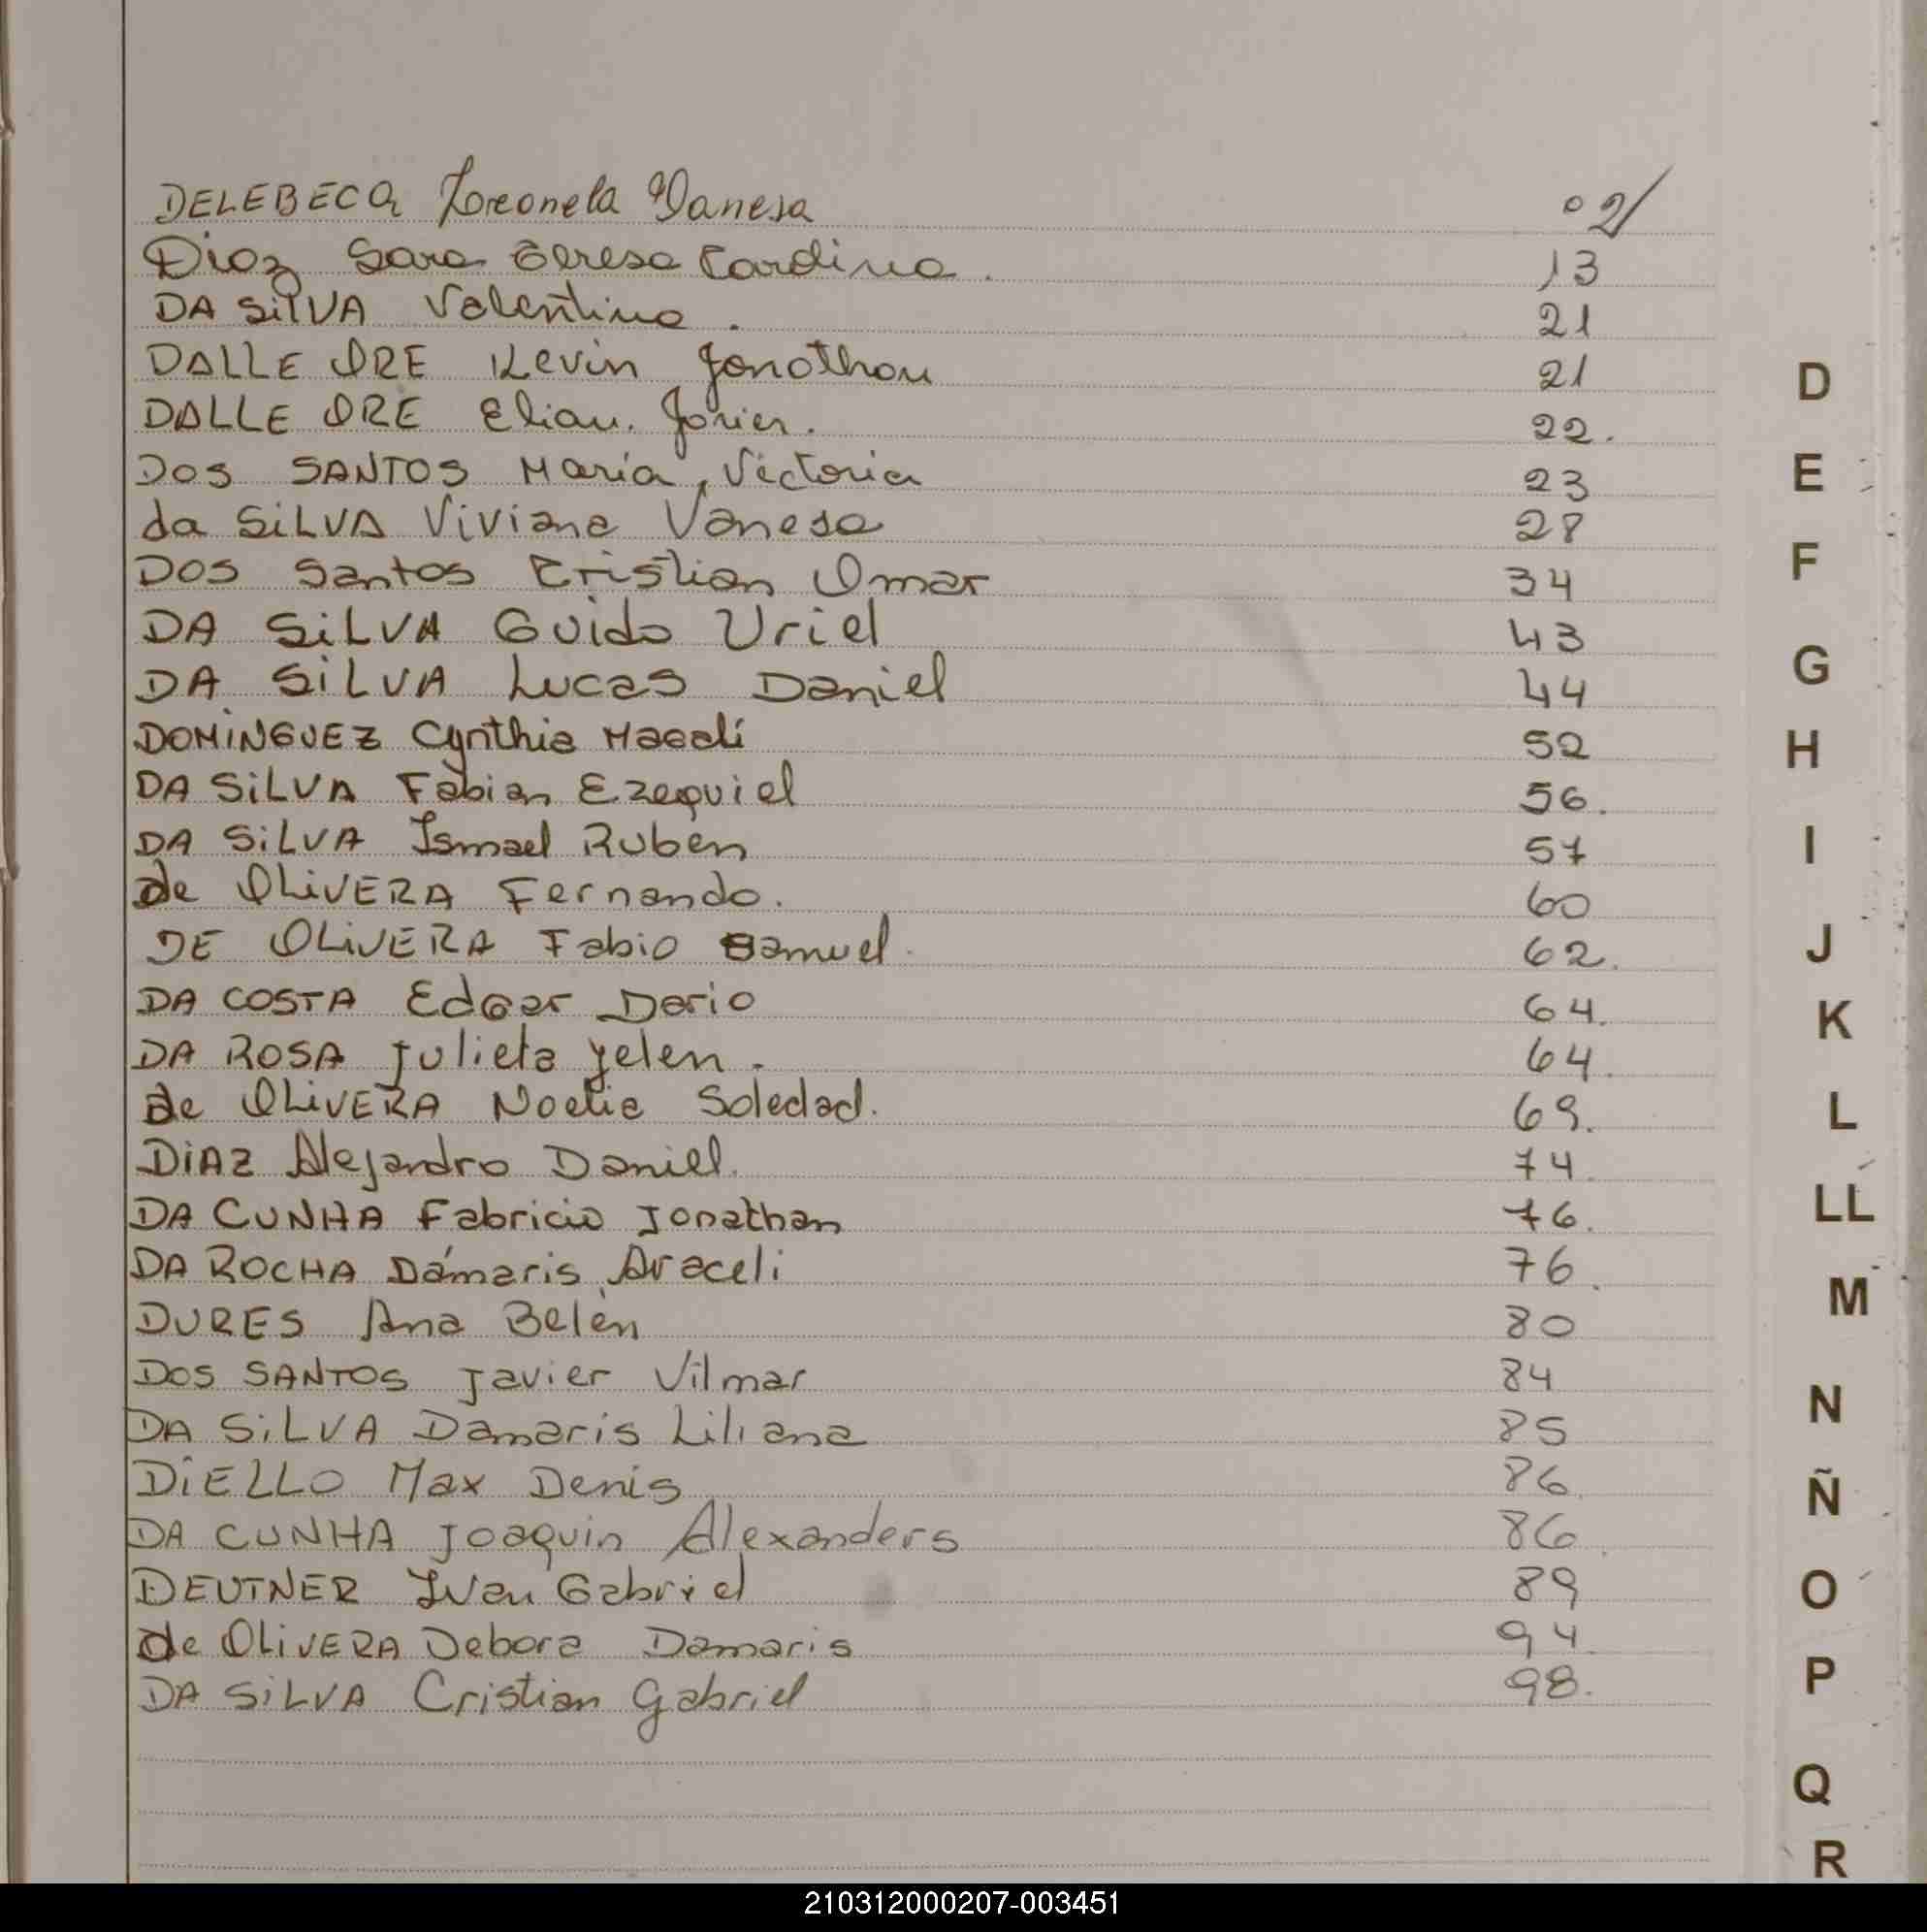 DELEBECQ Leonela Vanesa 02/
Diaz Sara Teresa Cardina. 13
DA SilVA Valentina. 21
DALLE ORE Kevin Jonathan 21
DALLE ORE Elian Javier. 22.
Dos SANTOS María Victoria 23
da SiLVA Viviana Vanesa 28
Dos Santos Cristian Omar 34
DA SiLVA Guido Uriel 43
DA SiLVA Lucas Daniel 44
DOMiNGUEZ Cynthia Magalí 52
DA SiLVA Fabian Ezequiel 56.
DA SiLVA Ismael Ruben 57
de OLiVERA Fernando. 60
DE OLiVERA Fabio Samuel. 62.
DA COSTA Edgar Dario 64.
DA ROSA Julieta yelen. 64.
de OLiVERA Noelia Soledad. 69.
DiAZ Alejandro Daniel. 74.
DA CUNHA Fabricio Jonathan 76.
DA ROCHA Dámaris Araceli 76.
DURES Ana Belén 80
DOS SANTOS Javier Vilmar 84
DA SiLVA Damaris Liliana 85
DiELLO Max Denis 86.
DA CUNHA Joaquin Alexanders 86.
DEUTNER Ivan Gabriel 89
de OLiVERA Debora Damaris 94.
DA SiLVA Cristian Gabriel 98.
D
E
F
G
H
I
J
K
L
LL
M
N
Ñ
O
P
Q
R
210312000207-003451